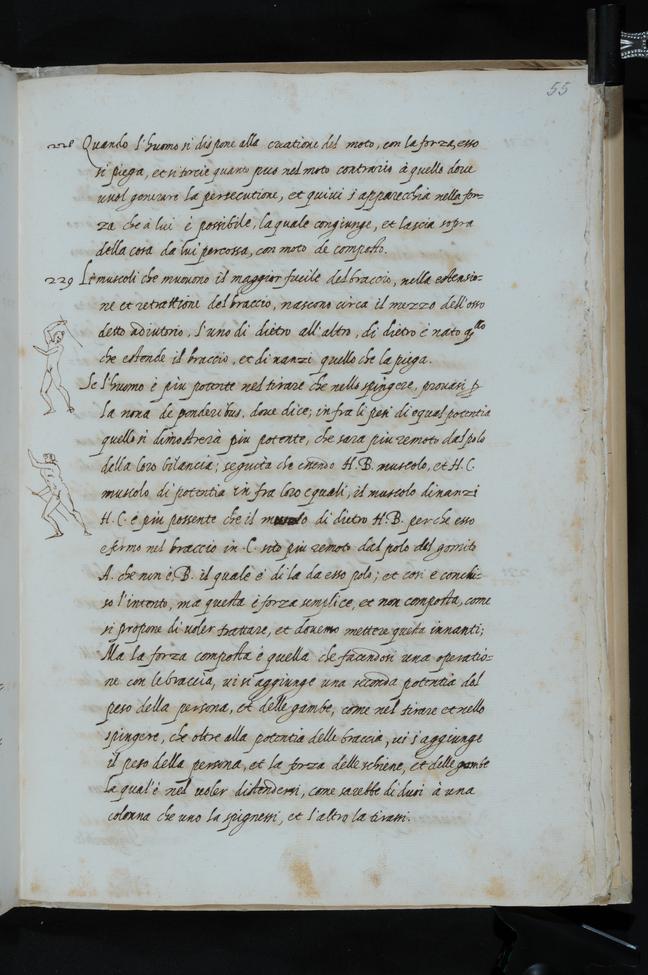 55
228 Quando l'huomo si dispone alla creatione del moto, con la forza, esso
si piega, et si torcie quanto puo nel moto contrario à quello dove
vuol generare la persecutione, et quivi s'apparecchia nella for=
za che à lui è possibile, la quale congiunge, et lascia sopra
della cosa da lui percossa, con moto de composto.
229 Li muscoli che muovono il maggior fucile del braccio, nella estensio=
ne et retrattione del braccio, nascono circa il mezzo dell'osso
detto adiutorio, l'uno di dietro all'altro, di dietro è nato qllo
che estende il braccio, et dinanzi quello che la piega.
Se l'huomo è piu potente nel tirare che nello spingere, provasi p
la nona de ponderibus, dove dice; infra li pesi di equal potentia
quello si dimostrerà piu potente, che sara piu remoto dal polo
della loro bilancia; seguita che essendo H.B. muscolo, et H.C.
muscolo di potentia in fra loro equali, il muscolo dinanzi
H.C. è piu possente che il di dietro H.B. perche esso
e fermo nel braccio in .C. sito piu remoto dal polo del gomito
A. che non è .B. il quale è di la da esso polo; et cosi e conchiu=
so l'intento, ma questa è forza semplice, et non composta, come
si propone di voler trattare, et dovemo mettere questa innanti;
Ma la forza composta è quella che facendosi una operatio=
ne con le braccia, vi si aggiunge una seconda potentia del
peso della persona, et delle gambe, come nel tirare et nello
spingere, che oltre alla potentia delle braccia, vi s'aggiunge
il peso della persona, et la forza delle schiene, et delle gambe
la qual'è nel voler distendersi, come sarebbe di duoi à una
colonna che uno la spignessi, et l'altro la tirassi.